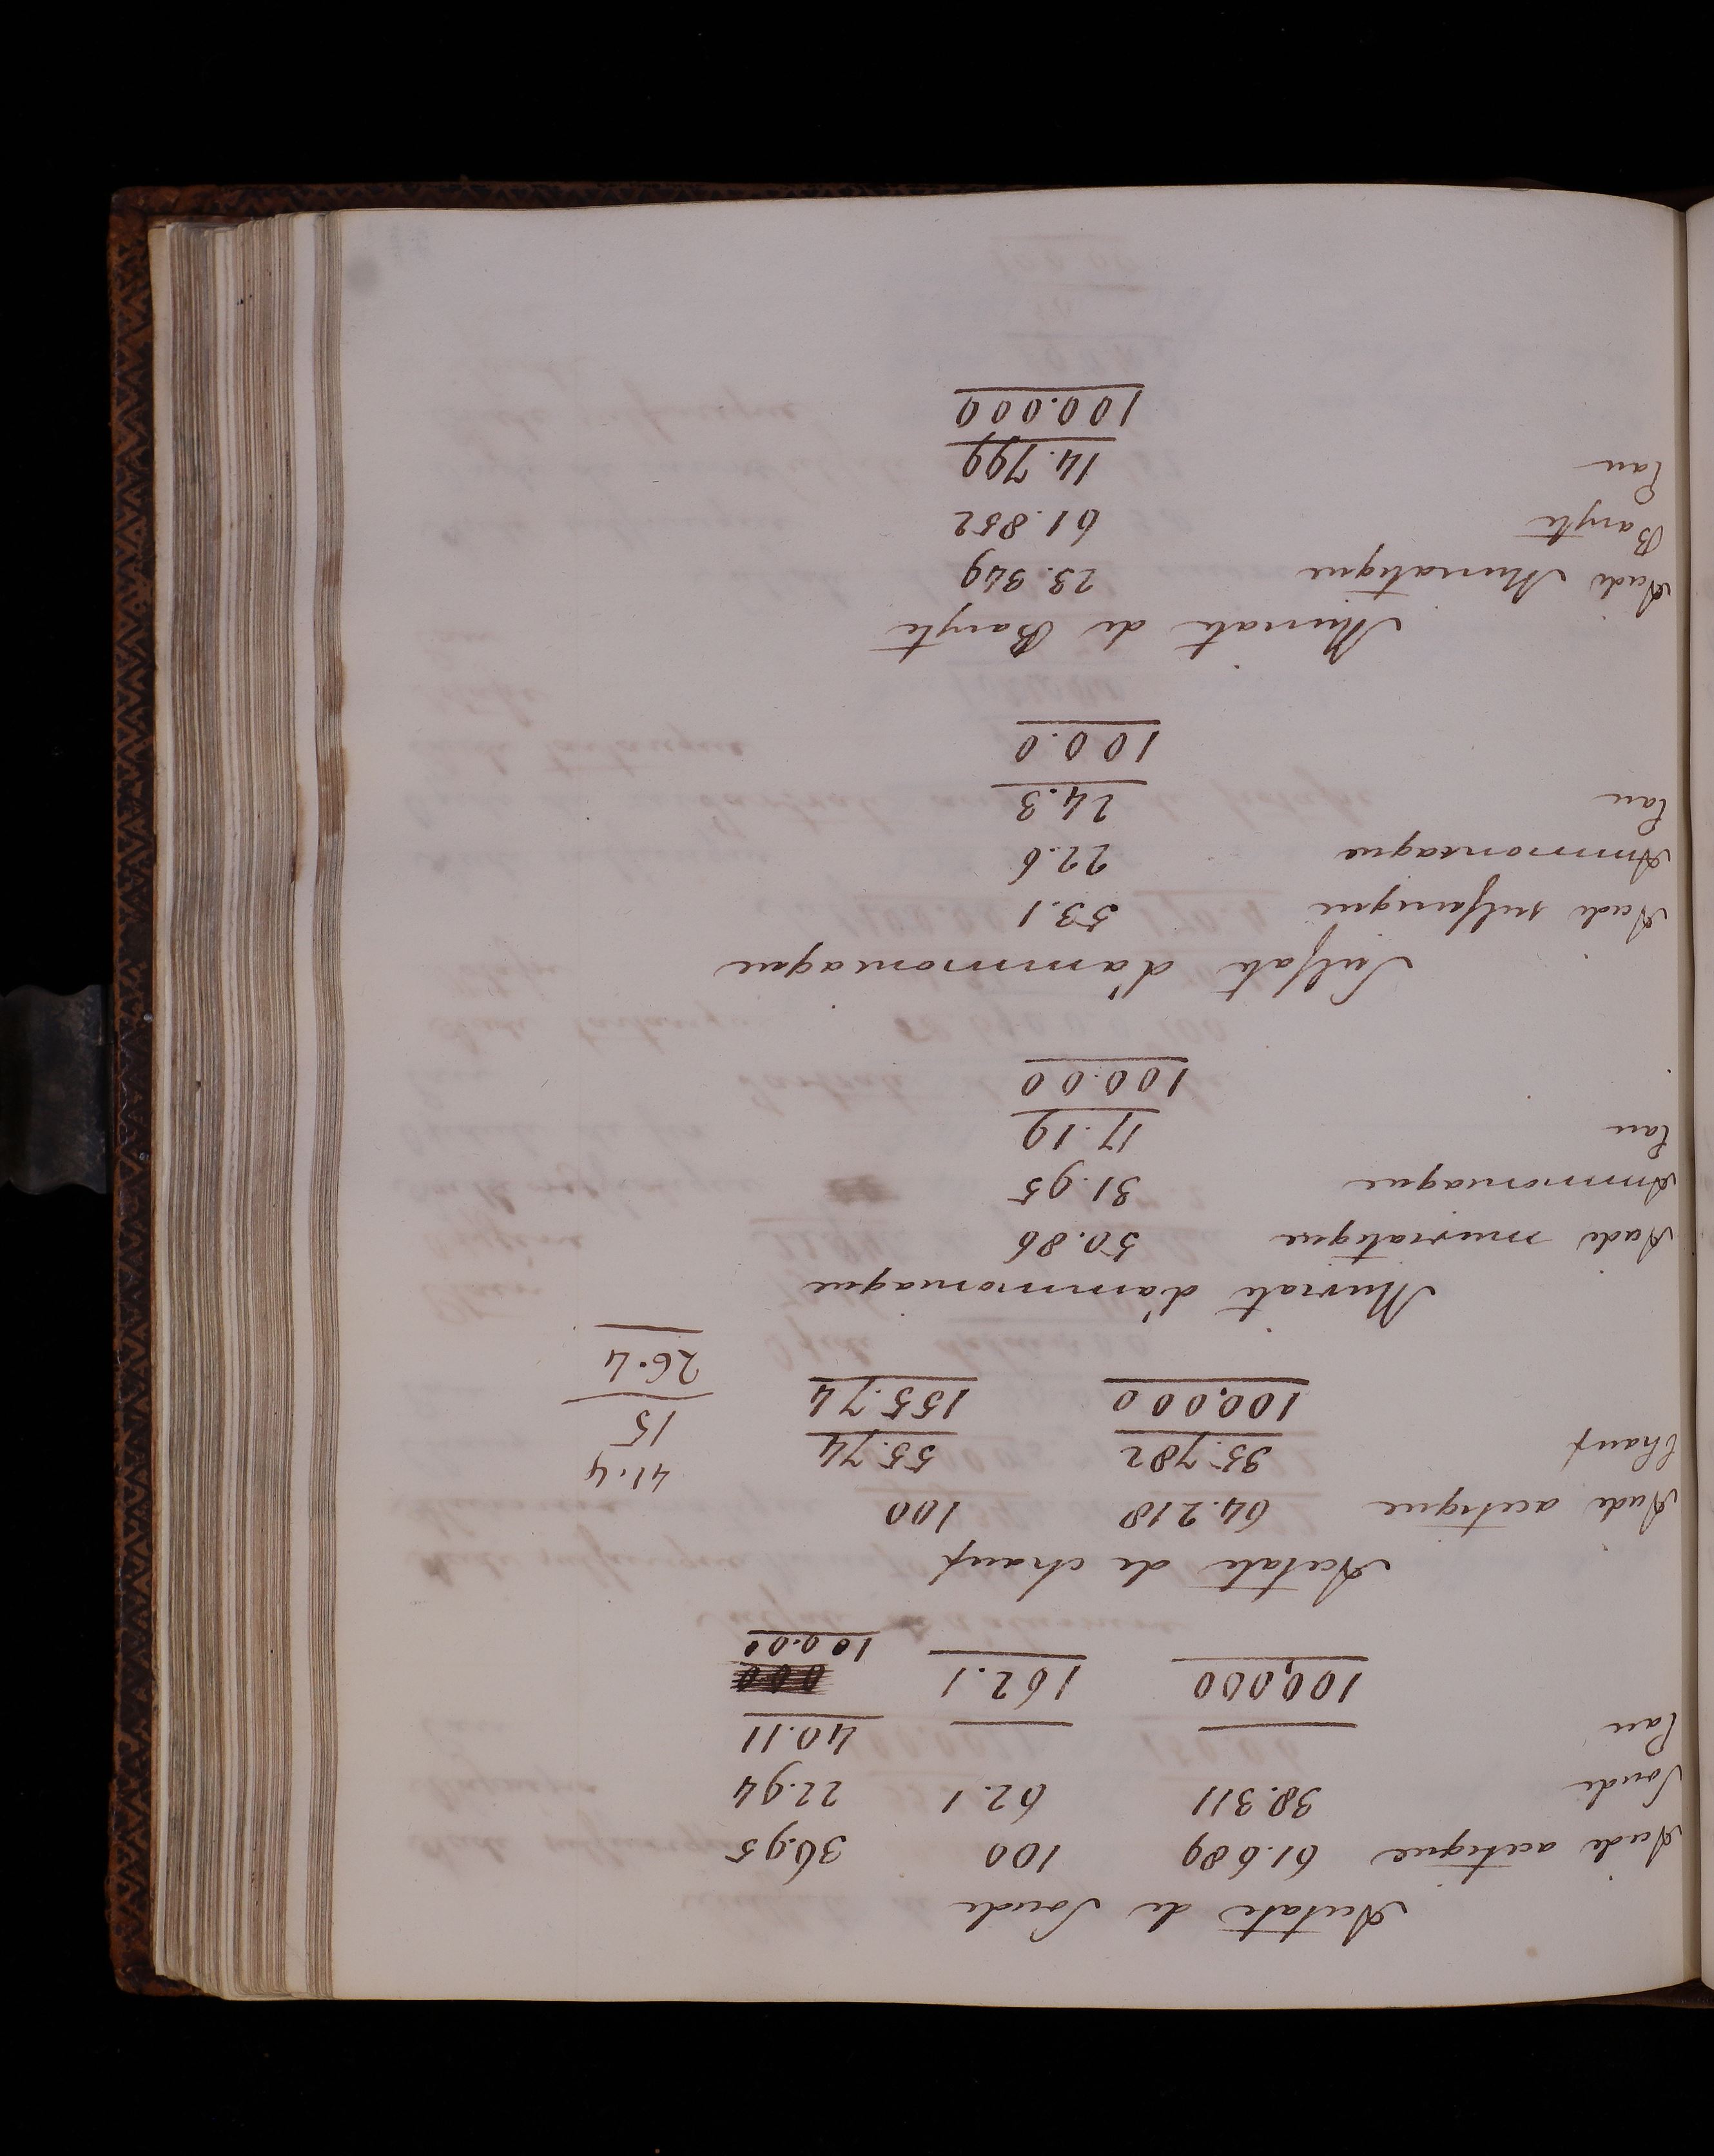 Acetate de Soude
Acide acetique 61.689 100 36.95
Soude 38.311 62.1 22.94
Eau 40.11
100,000 162.1 100.00
Acetate de chaux
Acide acetique 64.218 100
Chaux 35.782 55.74
100,000 155.74
41.4
15
26.4
Muriate d'ammoniaque
Acide muriatique 50.86
Ammoniaque 31.95
Eau 17.19
100.00
Sulfate d'ammoniaque
Acide sulfurique 53.1
Ammoniaque 22.6
Eau 24.3
100.0
Muriate de Baryte
Acide Muriatique 23.349
Baryte 61.852
Eau 14.799
100.000